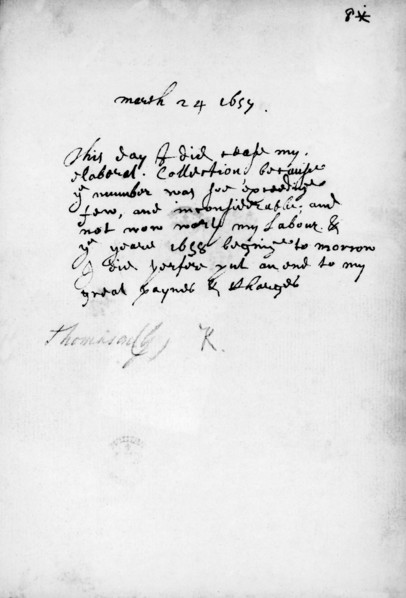 8*
march 24 1657.
This day I did cease my.
elaborat. Collection, because
ye number was soe exceeding
few, and inconsiderable; and
not now worth my Labour. &
ye yeare 1658 begins to morrow
I did yrfore put an end to my
great paynes & charges
Thomason (G) K.